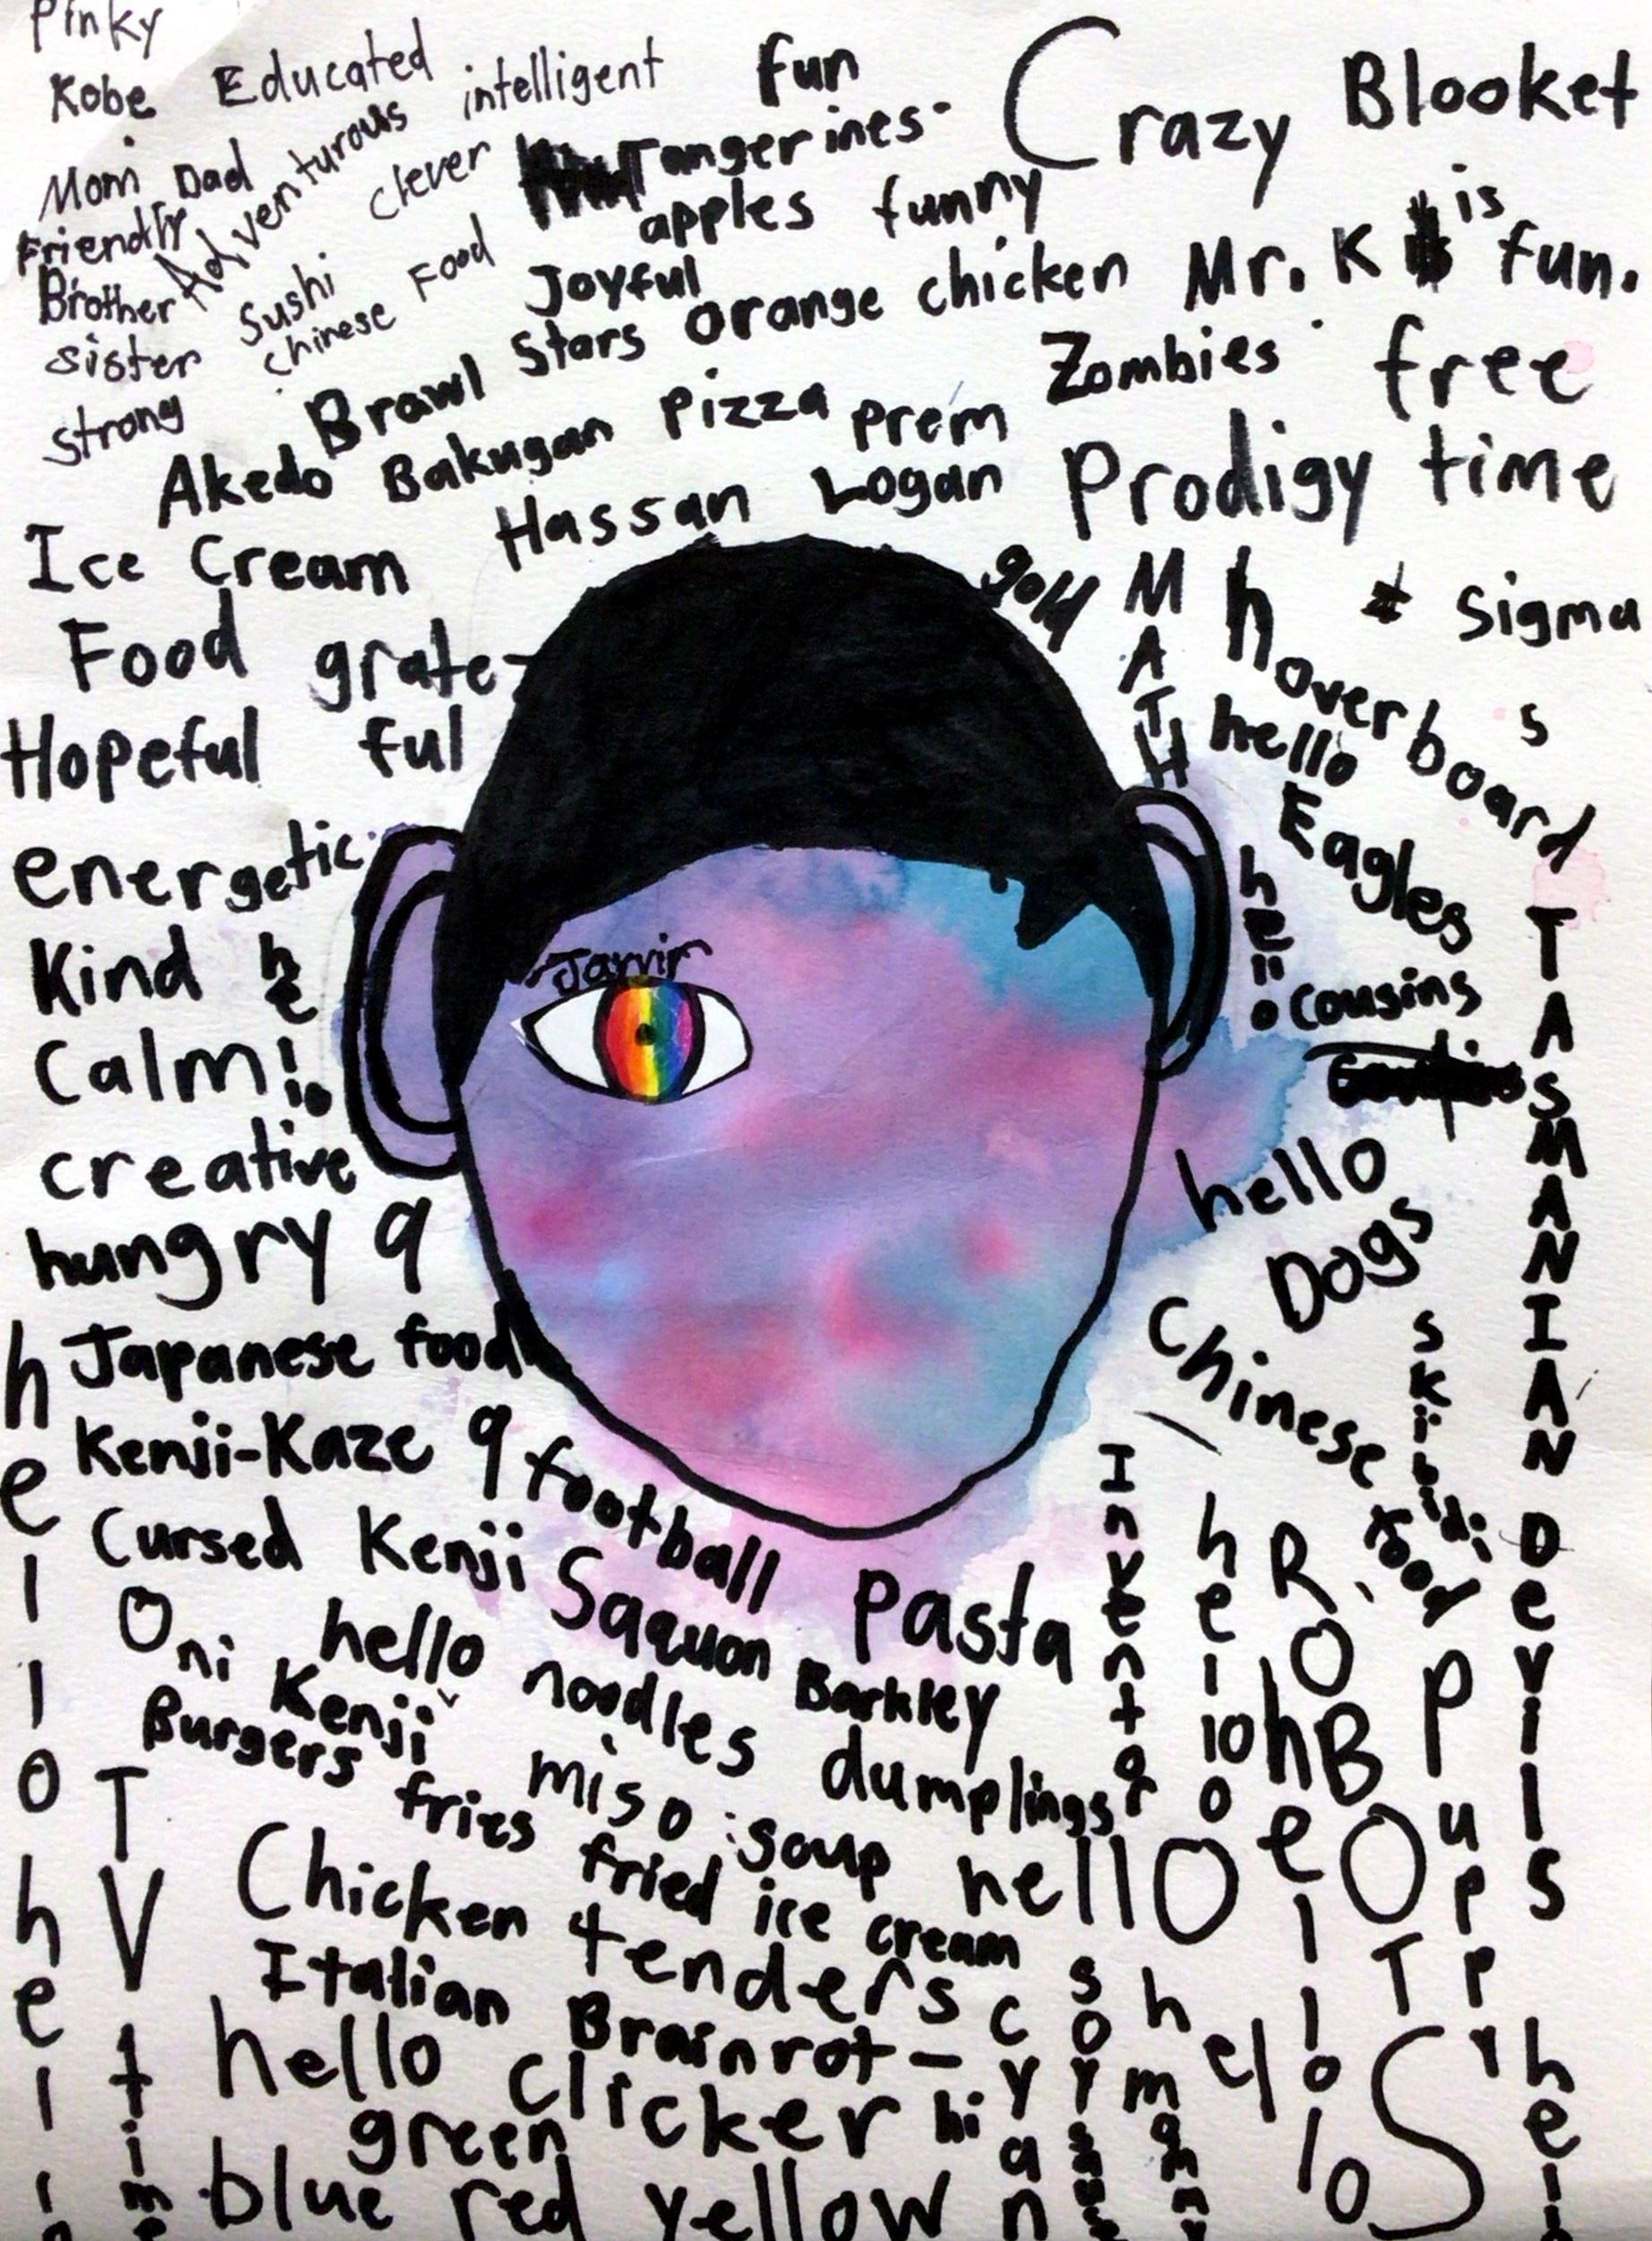 Pinky
Kobe Educated intelligent fun Crazy Blooket
Mom Dad Adventurous clever Tangerines
Friendly apples funny
Brother Sushi Joyful
Sister Chinese Food
Strong
Brawl Stars orange chicken Mr. K is fun.
Akedo Bakugan Pizza prem Zombies free
Hassan Logan Prodigy time
Ice Cream
gold MATH hoverboard sigma
Food grate-
ful
Hopeful
hello
s
energetic
Eagles
hello
Kind he
Jarvir
cousins
Calm!
creative
hello
hungry 9
Dogs
Japanese food
Chinese food
skibidi
TASMANIAN Devils
Kenji-Kaze 9
football
hellohell
Cursed Kenji
Saquon Barkley
Pasta
Inventor
hello
ROBOTS
Puppy
Oni Kenji
hello
noodles
dumplings
Burgers fries
miso soup
hello
hello
TV time
Chicken tenders
fried ice cream
Italian Brainrot-
hello
clicker
hi
cyan
hello
green
blue red yellow